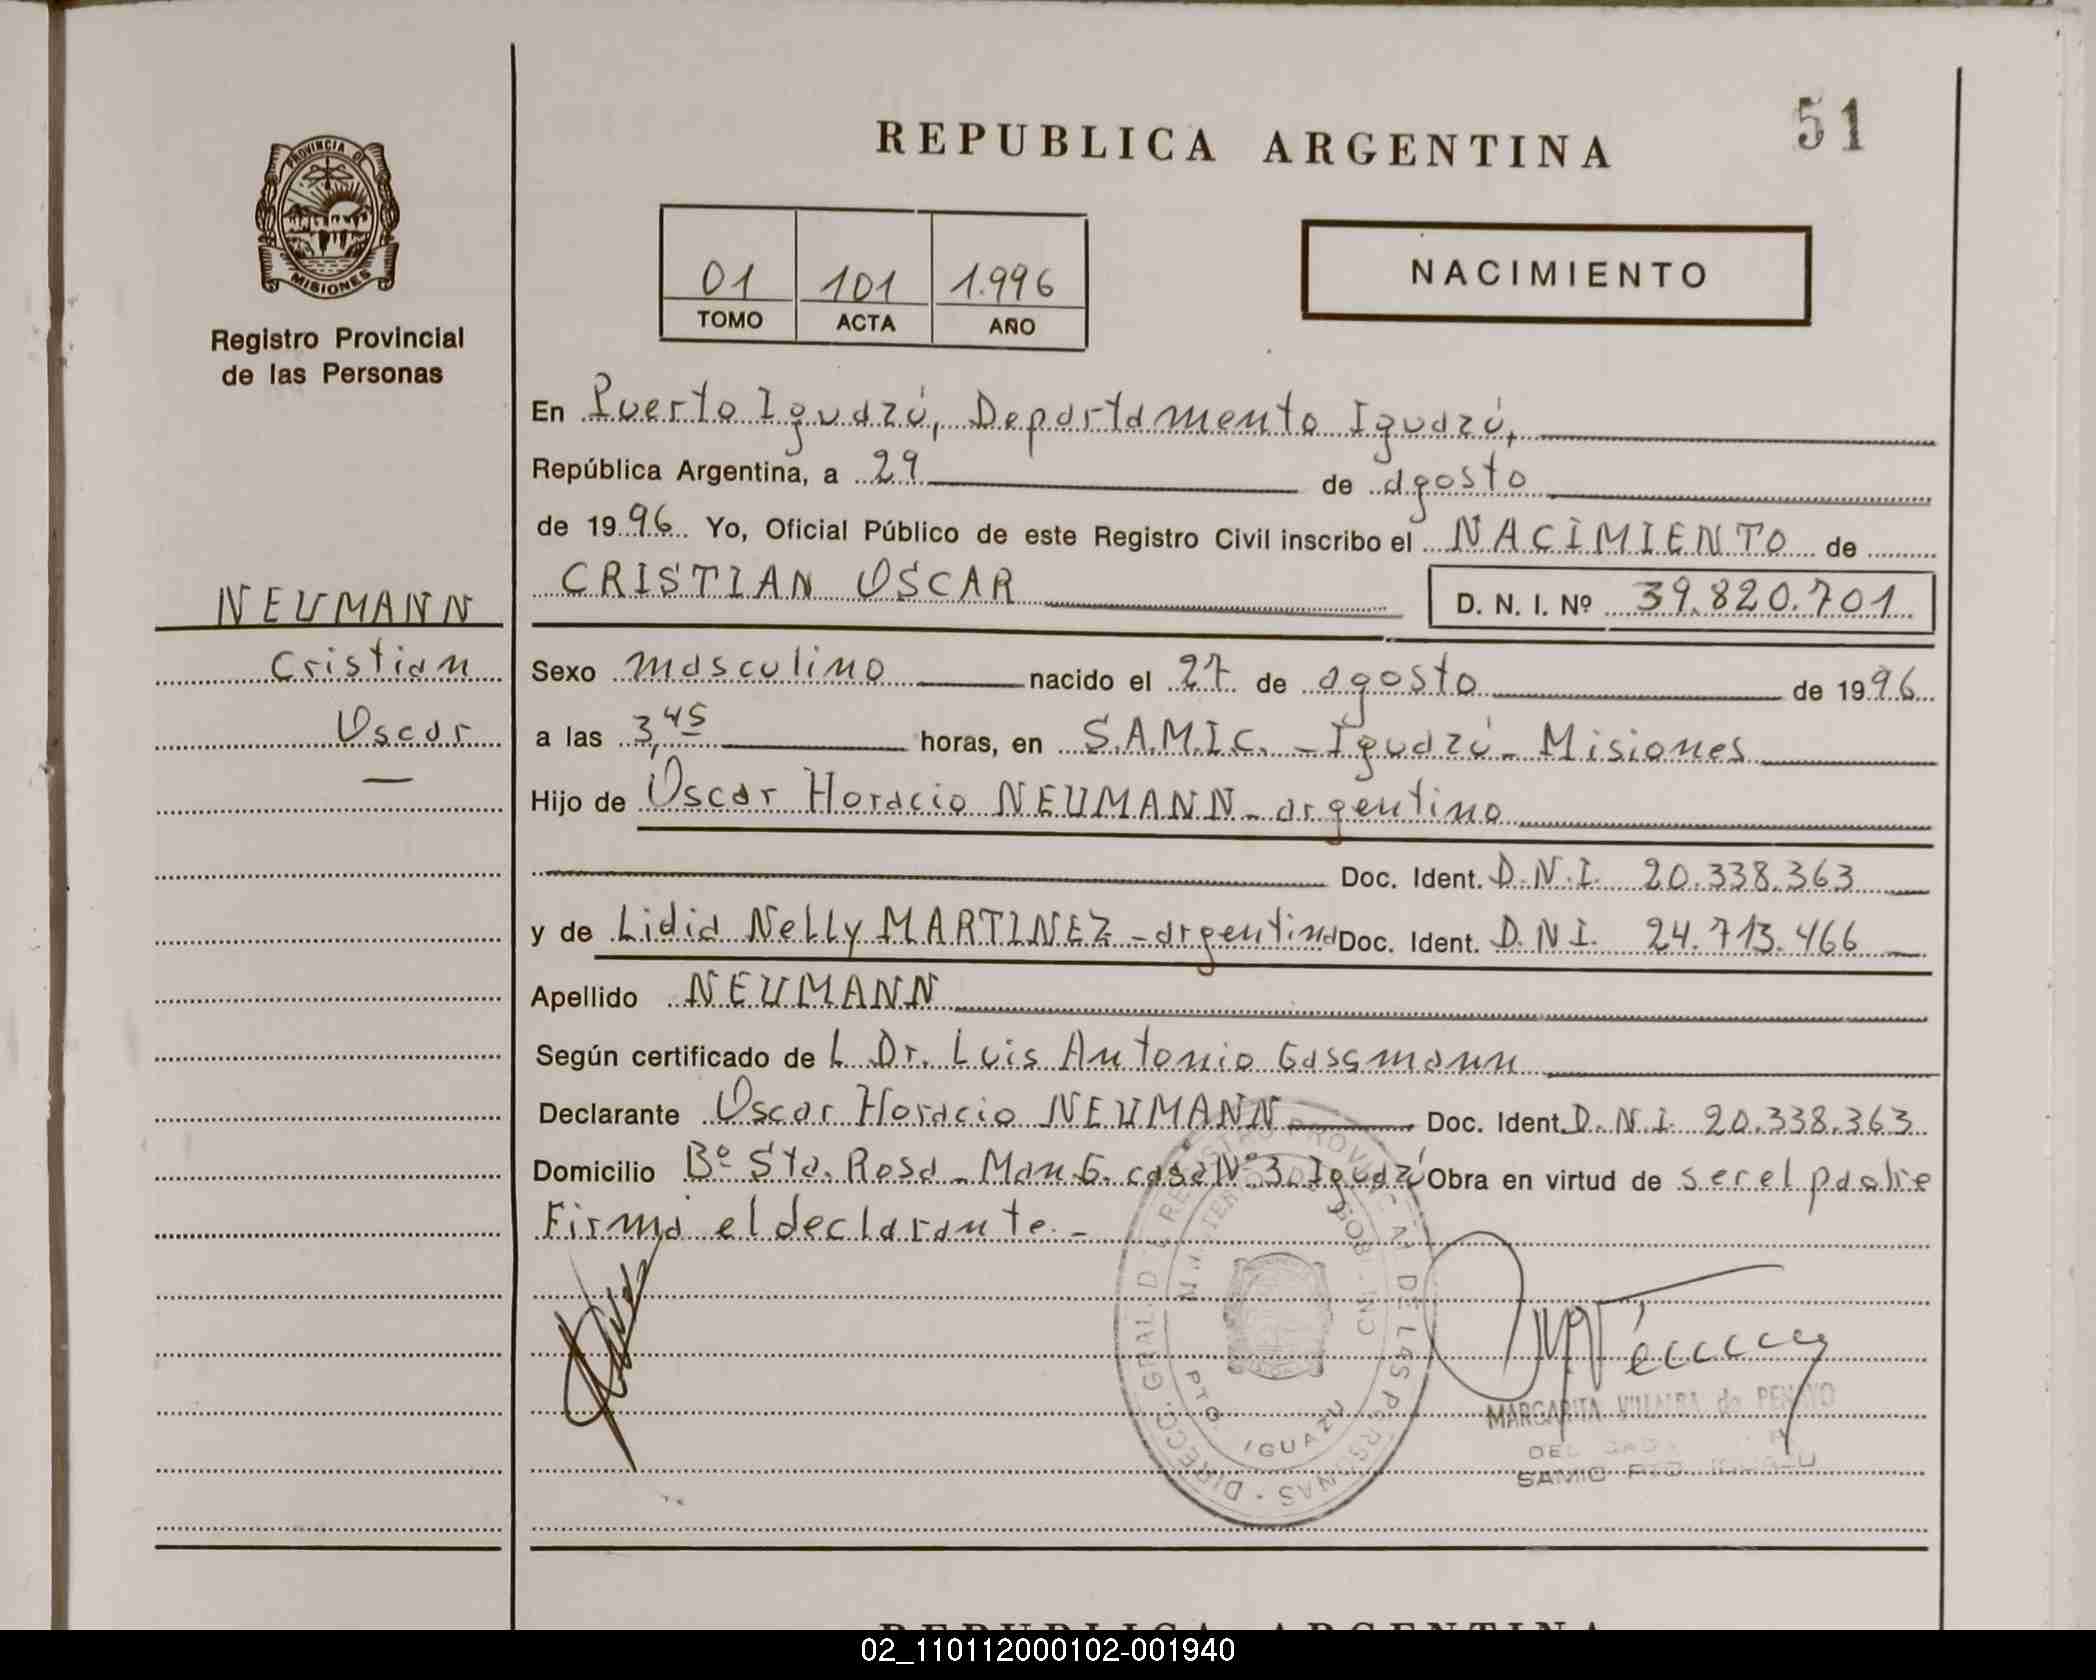 51
REPUBLICA ARGENTINA
PROVINCIA DE
MISIONES
Registro Provincial
de las Personas
01 101 1.996
TOMO ACTA AÑO
NACIMIENTO
En Puerto Iguazú, Departamento Iguazú,
República Argentina, a 29 de agosto
de 1996 Yo, Oficial Público de este Registro Civil inscribo el NACIMIENTO de
CRISTIAN OSCAR D. N. I. Nº 39.820.701
NEUMANN
Cristian
Oscar
Sexo masculino nacido el 27 de agosto de 1996
a las 3,45 horas, en S.A.M.I.C. - Iguazú - Misiones
Hijo de Oscar Horacio NEUMANN - argentino
Doc. Ident. D.N.I. 20.338.363
y de Lidia Nelly MARTINEZ - argentina Doc. Ident. D.N.I. 24.713.466
Apellido NEUMANN
Según certificado de L Dr. Luis Antonio Gassmann
Declarante Oscar Horacio NEUMANN Doc. Ident. D.N.I. 20.338.363
Domicilio Bº Sta. Rosa - Man 6. casa Nº 3. Iguazú Obra en virtud de ser el padre
Firma el declarante. -
DIRECC. GRAL. DE REGISTRO PROVINCIAL DE LAS PERSONAS
PTO. IGUAZU
MARGARITA VILLALBA de PENAYO
SAMIC PTO. IGUAZU
REPUBLICA ARGENTINA
02_110112000102-001940